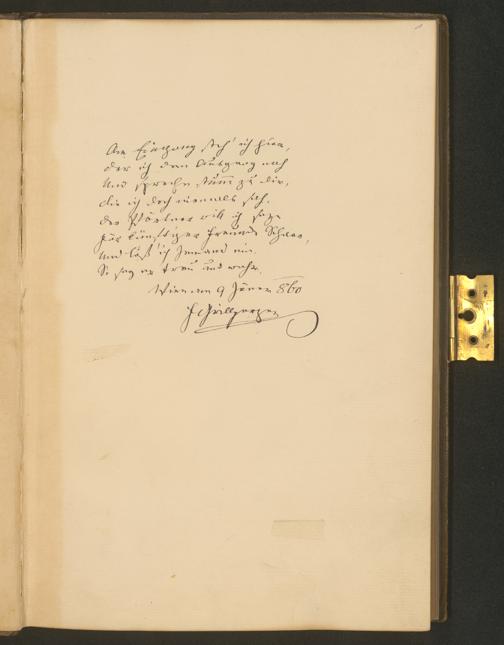 Am Eingang steh' ich hier,
der ich dem Ausgang nah
Und spreche stumm zu dir,
die ich doch niemals sah.
Der Pförtner will ich seyn
für künft'ger Freunde Schaar,
Und laß' ich Jemand ein,
So sey er treu und wahr.
Wien am 9 Jäner 860
Grillparzer